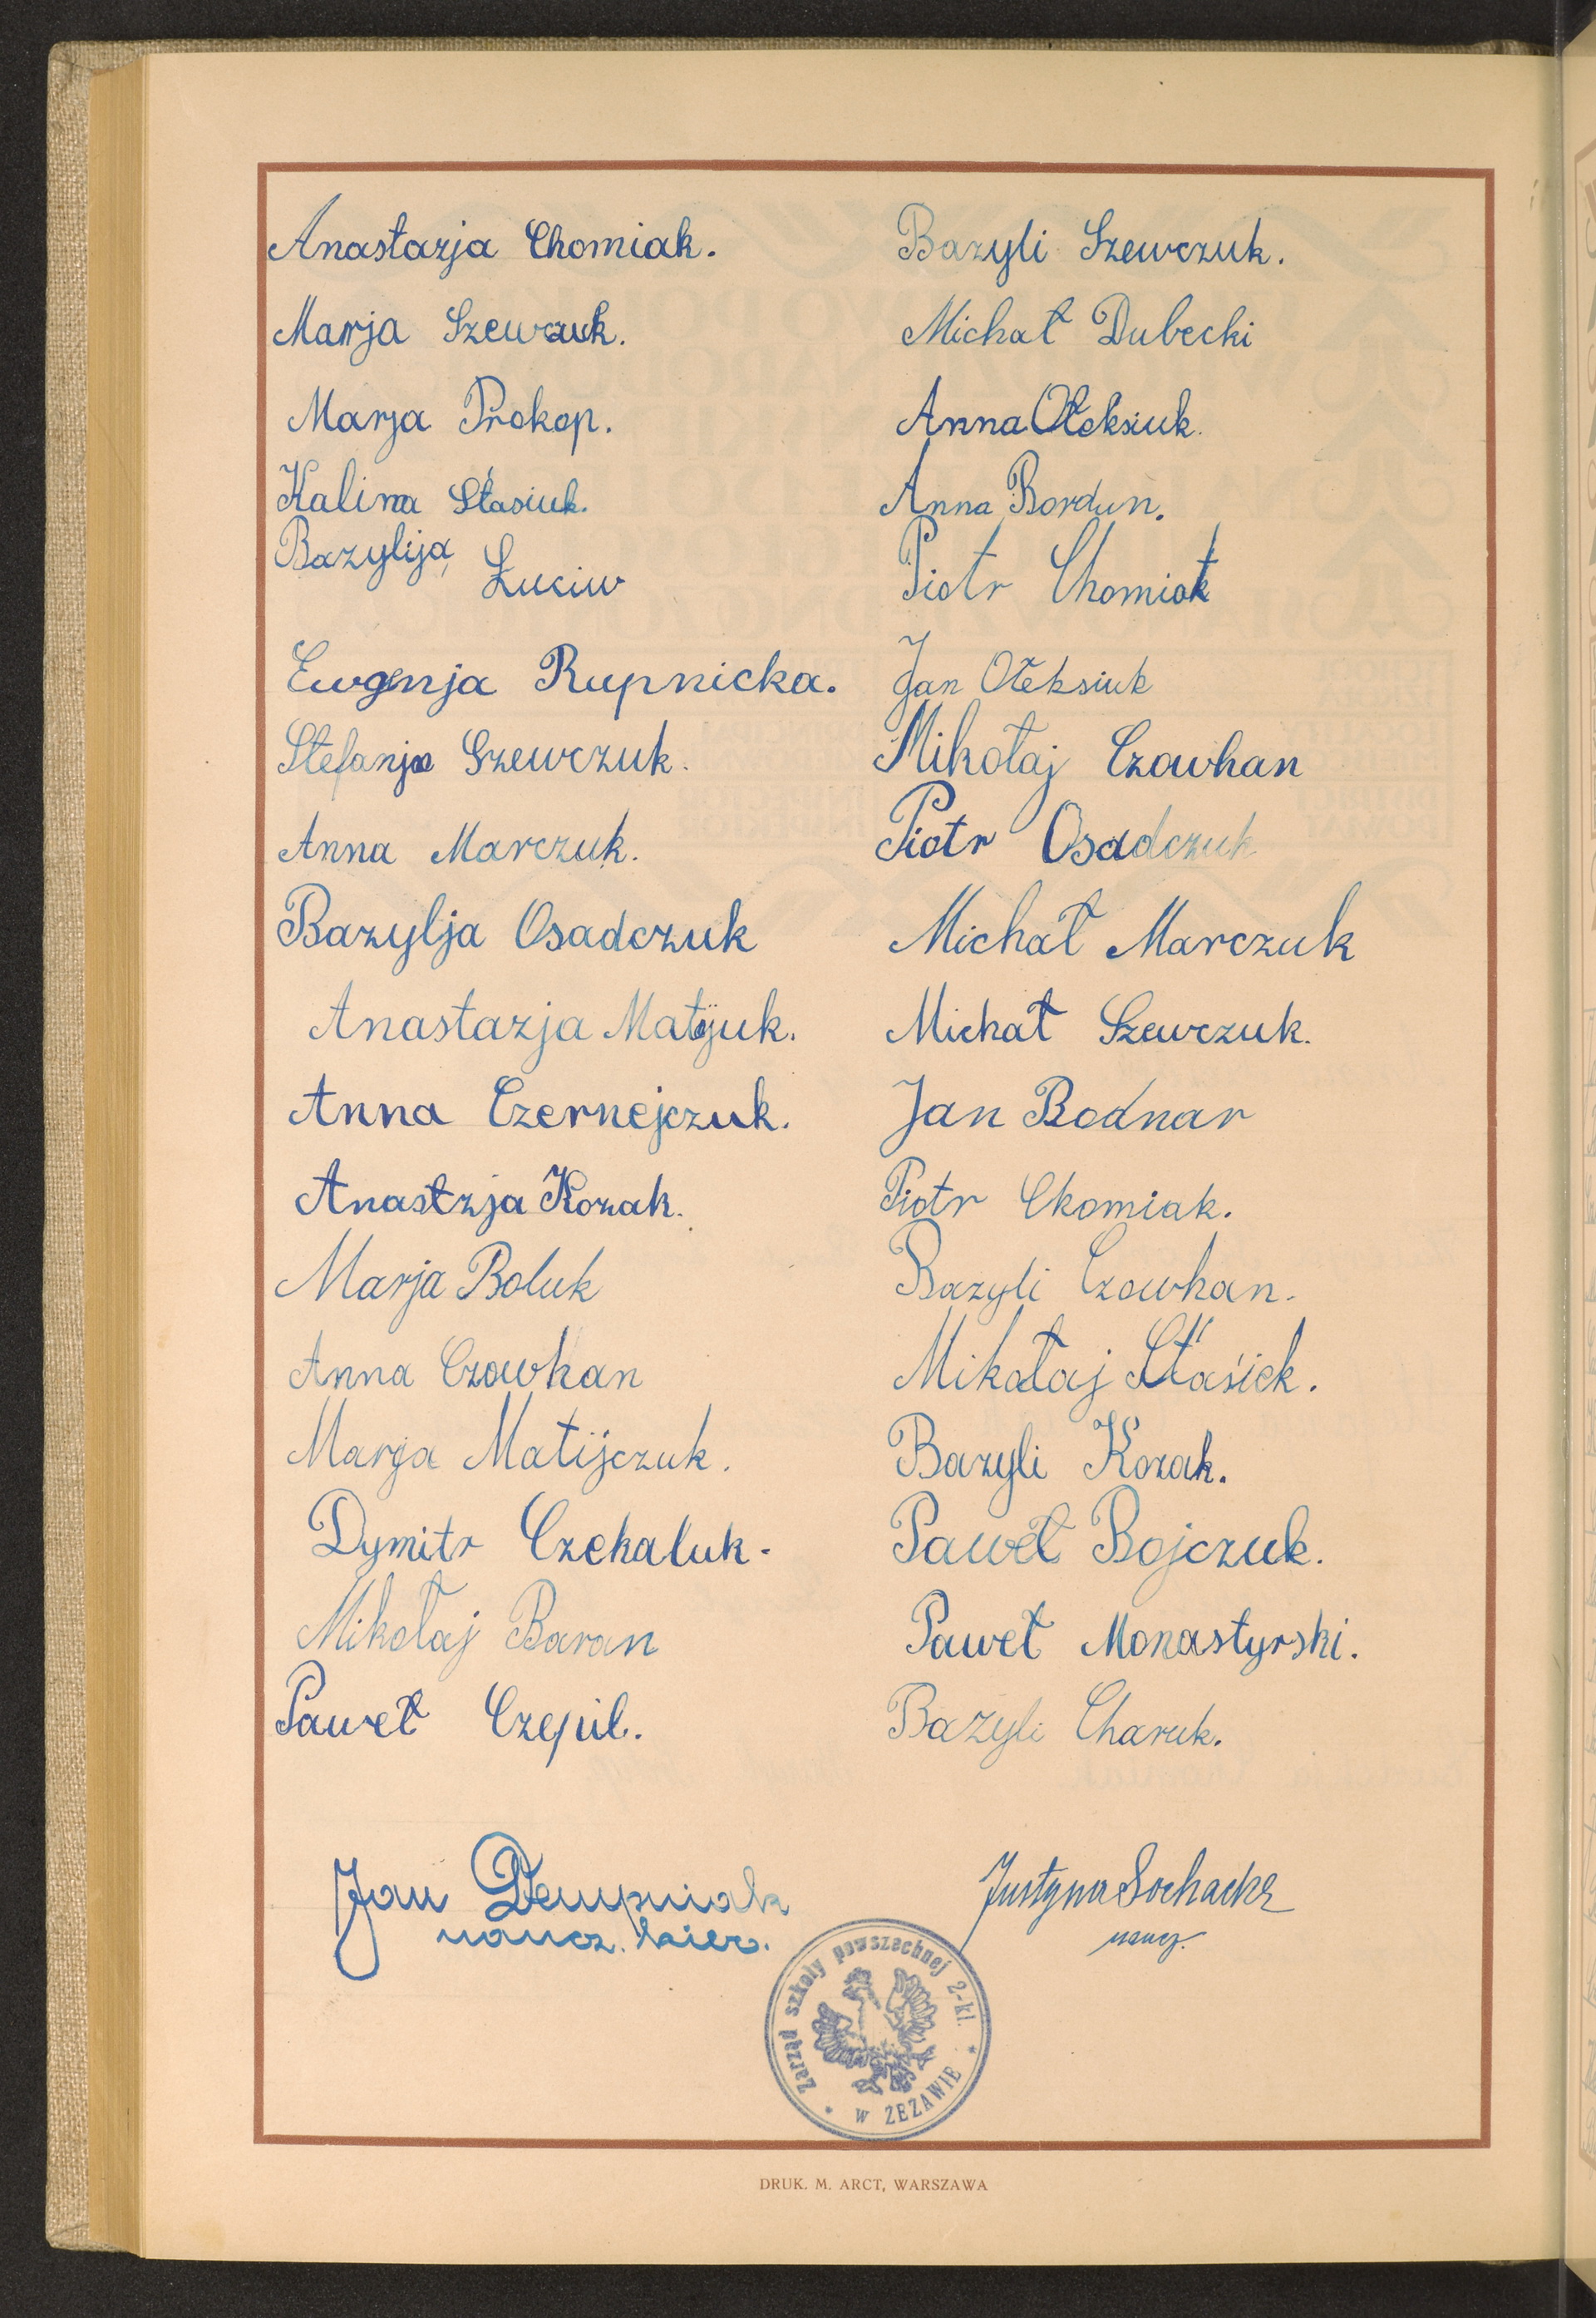 Anastazja Chomiak.
Marja Szewczuk.
Marja Prokop.
Kalina Stasiuk.
Bazylija
Łuciw
Ewgenja Rupnicka.
Stefanja Szewczuk.
Anna Marczuk.
Bazylja Osadczuk
Anastazja Matijuk.
Anna Czernejczuk.
Anastzja Kozak.
Marja Boluk
Anna Czowhan
Marja Matijczuk.
Dymitr Czekaluk.
Mikołaj Baran
Paweł Czepil.
Bazyli Szewczuk.
Michał Dubecki
Anna Ołeksiuk.
Anna Bordun.
Piotr Chomiak
Jan Ołeksiuk
Mikołaj Czowhan
Piotr Osadczuk
Michał Marczuk
Michał Szewczuk.
Jan Bodnar
Piotr Chomiak.
Bazyli Czowhan.
Mikołaj Staśick.
Bazyli Kozak.
Paweł Bojczuk.
Paweł Monastyrski.
Bazyli Charuk.
Jan
naucz. kier.
Justyna Sochacka
naucz.
Zarząd szkoły powszechnej 2-kl.
* W ZEZAWIE *
DRUK. M. ARCT, WARSZAWA